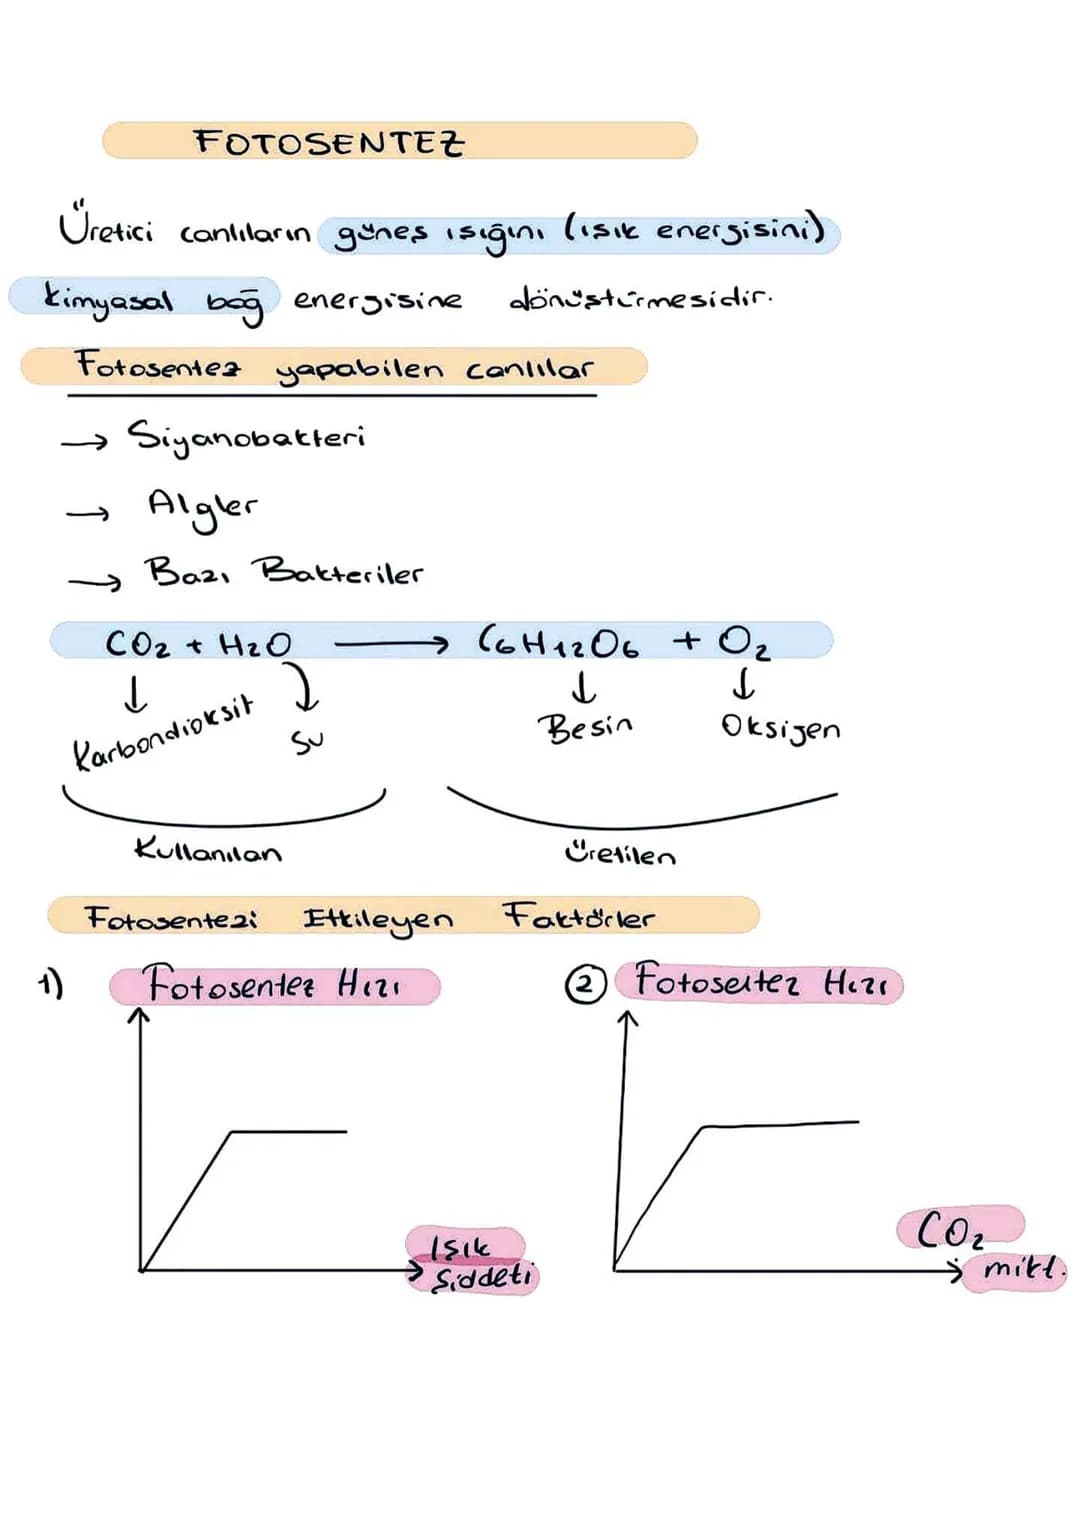 FOTOSENTEZ
Üretici canlıların güneş ışığını (ışık enerjisini)
kimyasal bağ enerjisine dönüştürmesidir.
Fotosentez yapabilen canlılar
→ Siyanobakteri
→ Algler
→ Bazı Bakteriler
CO₂ + H₂O → C₆H₁₂O₆ + O₂
↓ ↓ ↓ ↓
Karbondioksit Su Besin Oksijen
Kullanılan Üretilen
Fotosentezi Etkileyen Faktörler
1) Fotosentez Hızı
Işık
Şiddeti
② Fotosentez Hızı
CO₂
mikt.